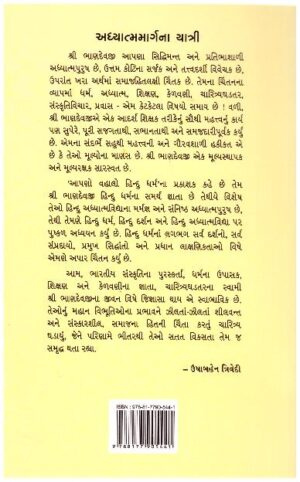 અધ્યાત્મમાર્ગના યાત્રી
શ્રી ભાણદેવજી આપણા સિદ્ધિમન્ત અને પ્રતિભાશાળી
અધ્યાત્મપુરુષ છે, ઉત્તમ કોટિના સર્જક અને તત્ત્વદર્શી વિવેચક છે,
ઉપરાંત ખરા અર્થમાં સમાજહિતલક્ષી ચિંતક છે. તેમના ચિંતનના
વ્યાપમાં ધર્મ, અધ્યાત્મ, શિક્ષણ, કેળવણી, ચારિત્ર્યઘડતર,
સંસ્કૃતિવિચાર, પ્રવાસ - એમ કેટકેટલા વિષયો સમાય છે ! વળી,
શ્રી ભાણદેવજીએ એક આદર્શ શિક્ષક તરીકેનું સૌથી મહત્ત્વનું કાર્ય
પણ સુપેરે, પૂરી સજ્જતાથી, સભાનતાથી અને સમજદારીપૂર્વક કર્યું
છે. એમના સંદર્ભે સહુથી મહત્ત્વની અને ગૌરવશાળી હકીકત એ
છે કે તેઓ મૂલ્યોના માણસ છે. શ્રી ભાણદેવજી એક મૂલ્યસ્થાપક
અને મૂલ્યરક્ષક સારસ્વત છે.
'આપણો વહાલો હિન્દુ ધર્મ'ના પ્રકાશક કહે છે તેમ
શ્રી ભાણદેવજી હિન્દુ ધર્મના સમર્થ જ્ઞાતા છે અને તેથીયે વિશેષ
તેઓ હિન્દુ અધ્યાત્મવિદ્યાના મર્મજ્ઞ અને સંનિષ્ઠ અધ્યાત્મપુરુષ છે,
તેથી તેમણે હિન્દુ ધર્મ, હિન્દુ દર્શન અને હિન્દુ અધ્યાત્મવિદ્યા પર
પુષ્કળ અધ્યયન કર્યું છે. હિન્દુ ધર્મનાં લગભગ સર્વ દર્શનો, સર્વ
સંપ્રદાયો, પ્રમુખ સિદ્ધાંતો અને પ્રધાન લાક્ષણિકતાઓ વિષે
એમણે અપાર ચિંતન કર્યું છે.
આમ, ભારતીય સંસ્કૃતિના પુરસ્કર્તા, ધર્મના ઉપાસક,
શિક્ષણ અને કેળવણીના જ્ઞાતા, ચારિત્ર્યઘડતરના સ્વામી
શ્રી ભાણદેવજીના જીવન વિષે જિજ્ઞાસા થાય એ સ્વાભાવિક છે.
તેઓનું મહાન વિભૂતિઓના પ્રભાવને ઝીલતાં-ઝીલતાં શીલવન્ત
અને સંસ્કારશીલ, સમાજના હિતની ચિંતા કરતું ચારિત્ર્ય
ઘડાયું, જેને પરિણામે ભીતરથી તેઓ સતત વિકસતા તેમ જ
સમૃદ્ધ થતા રહ્યા.
– ઉષાબહેન ત્રિવેદી
ISBN : 978-81-7790-544-1
9 788177 905441